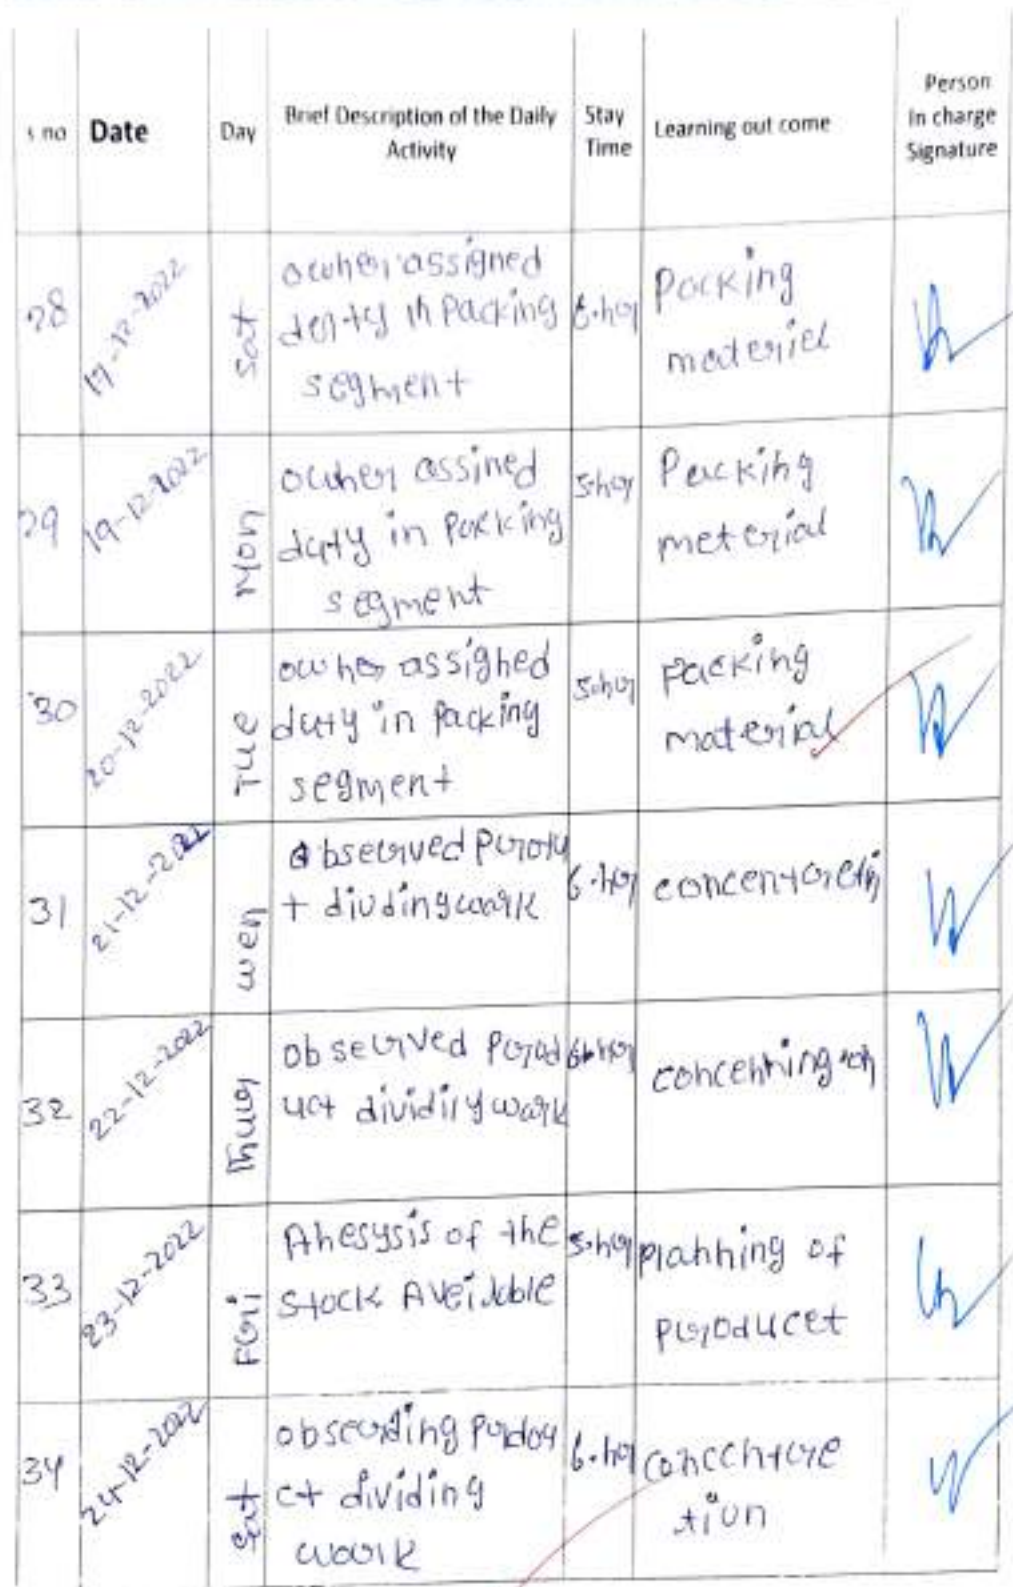 s no Date Day Brief Description of the Daily Activity Stay Time Learning out come Person In charge Signature
28 17-12-2022 Sat owner assigned
duty in Packing
segment
6.hor Packing
material
29 19-12-2022 Mon owner assined
duty in Packing
segment
5.hor Packing
meterial
30 20-12-2022 Tue owner assighed
duty in Packing
segment
5.hor packing
material
31 21-12-2022 wen observed
+ dividing work
6.hor
32 22-12-2022 Thur observed Prod
uct dividing work
6.hor
33 23-12-2022 Fri of the
Stock
5.hor planning of
producet
34 24-12-2022 Sat
ct dividing
work
6.hor concentre
tiun